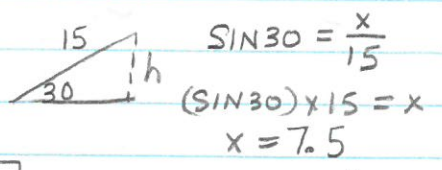 15
h
30
SIN30 = x/15
(SIN30) x 15 = x
x = 7.5